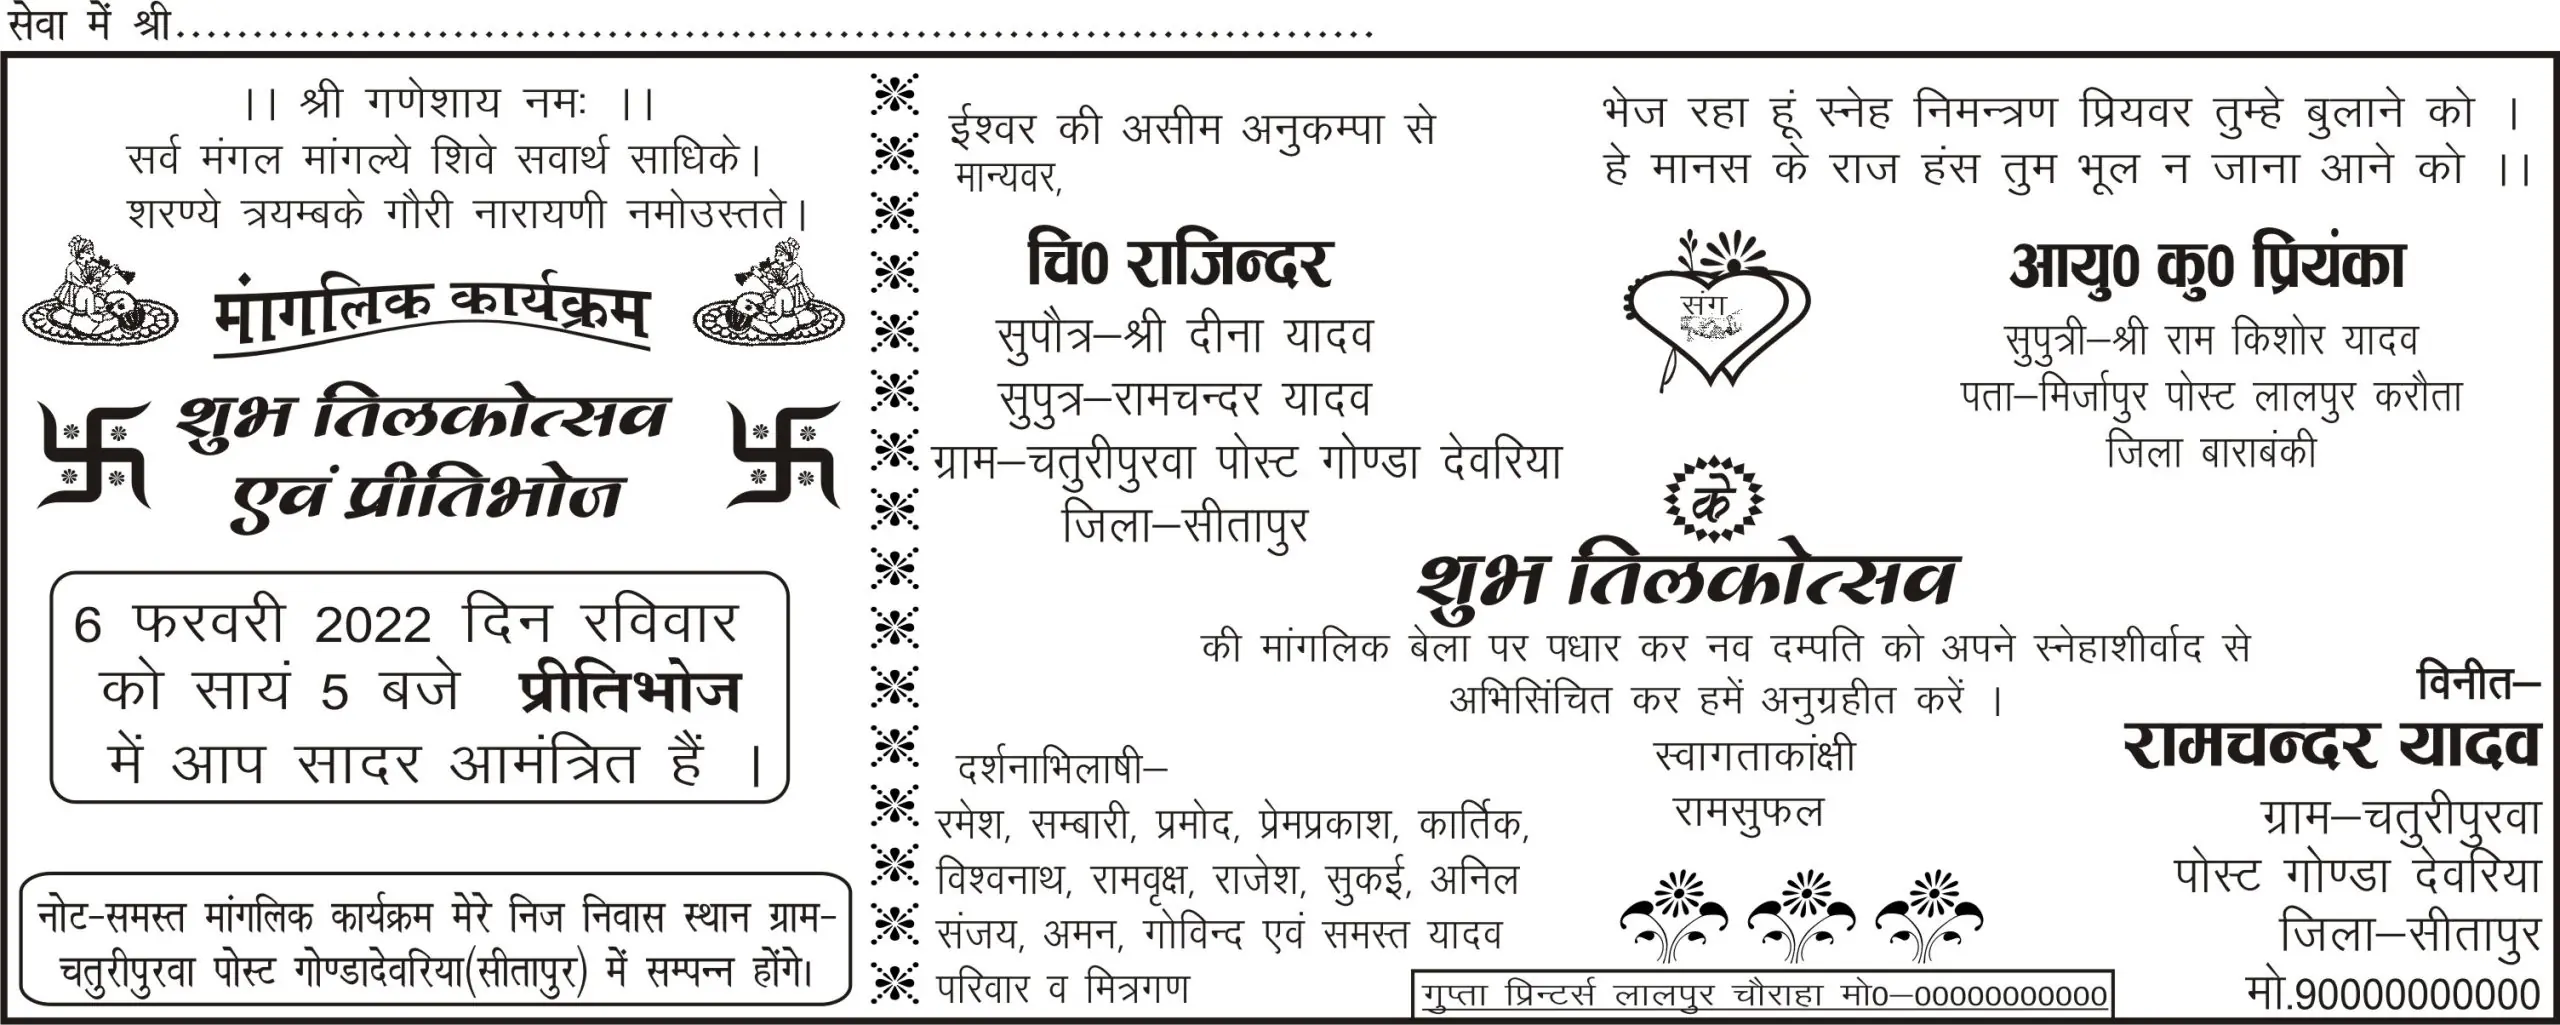 सेवा में श्री....................................................................................
।। श्री गणेशाय नमः ।।
सर्व मंगल मांगल्ये शिवे सवार्थ साधिके।
शरण्ये त्रयम्बके गौरी नारायणी नमोउस्तते।
मांगलिक कार्यक्रम
शुभ तिलकोत्सव
एवं प्रीतिभोज
6 फरवरी 2022 दिन रविवार
को सायं 5 बजे प्रीतिभोज
में आप सादर आमंत्रित हैं ।
नोट-समस्त मांगलिक कार्यक्रम मेरे निज निवास स्थान ग्राम-
चतुरीपुरवा पोस्ट गोण्डादेवरिया(सीतापुर) में सम्पन्न होंगे।
ईश्वर की असीम अनुकम्पा से
मान्यवर,
भेज रहा हूं स्नेह निमन्त्रण प्रियवर तुम्हे बुलाने को ।
हे मानस के राज हंस तुम भूल न जाना आने को ।।
चि0 राजिन्दर
सुपौत्र–श्री दीना यादव
सुपुत्र–रामचन्दर यादव
ग्राम–चतुरीपुरवा पोस्ट गोण्डा देवरिया
जिला–सीतापुर
संग
आयु0 कु0 प्रियंका
सुपुत्री–श्री राम किशोर यादव
पता–मिर्जापुर पोस्ट लालपुर करौता
जिला बाराबंकी
के
शुभ तिलकोत्सव
की मांगलिक बेला पर पधार कर नव दम्पति को अपने स्नेहाशीर्वाद से
अभिसिंचित कर हमें अनुग्रहीत करें ।
दर्शनाभिलाषी–
रमेश, सम्बारी, प्रमोद, प्रेमप्रकाश, कार्तिक,
विश्वनाथ, रामवृक्ष, राजेश, सुकई, अनिल
संजय, अमन, गोविन्द एवं समस्त यादव
परिवार व मित्रगण
स्वागताकांक्षी
रामसुफल
विनीत–
रामचन्दर यादव
ग्राम–चतुरीपुरवा
पोस्ट गोण्डा देवरिया
जिला–सीतापुर
मो.90000000000
गुप्ता प्रिन्टर्स लालपुर चौराहा मो0–00000000000